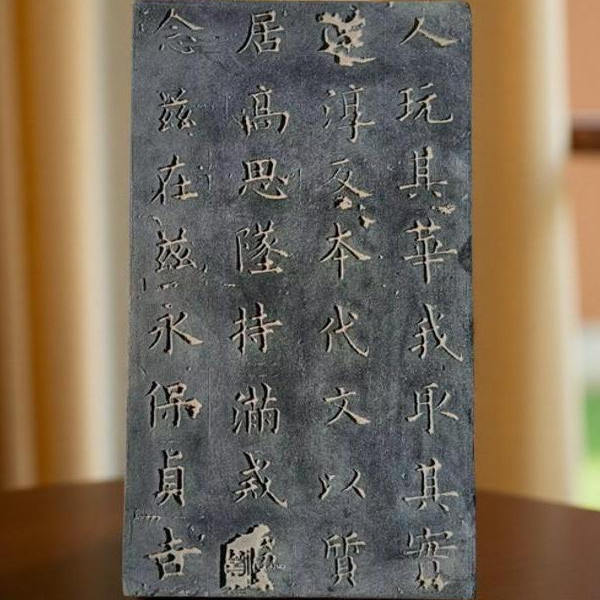 人玩其華我取其實
淳反本代文以質
居高思墜持滿戒
念茲在茲永保貞吉